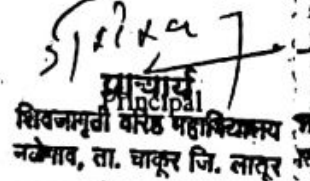 प्राचार्य
Principal
शिवजागृती वरिष्ठ महाविद्यालय
नळेगाव, ता. चाकूर जि. लातूर